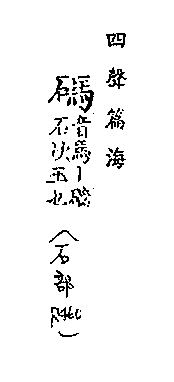 四聲篇海
碼 音馬丨碯石次玉也（石部